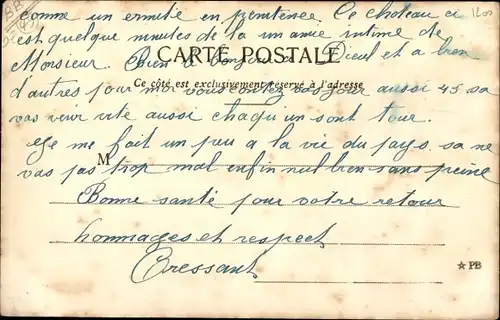 comme un ermite en penitence. Ce chateau ci
est quelque minutes de la un amie intime de
Monsieur. Bien à bonjours a Dieul et a bien
CARTE POSTALE
Ce côté est exclusivement réservé à l'adresse
d'autres pour moi vous contez pas jour aussi 45 sa
vas venir vite aussi chaqu'un sont tour.
Je me fait un peu a la vie du pays. sa ne
M
vas pas trop mal enfin nul bien sans peine
Bonne santé pour votre retour
hommages et respect
Cressant
PB